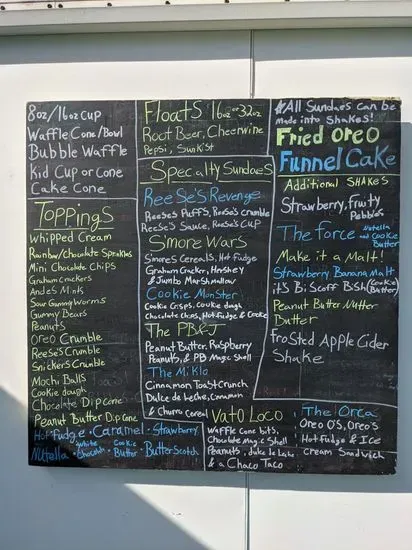 8oz/16oz cup
Waffle Cone/Bowl
Bubble Waffle
Kid Cup or Cone
Cake Cone
Toppings
Whipped Cream
Rainbow/Chocolate Sprinkles
Mini Chocolate Chips
Graham Crackers
Andes Mints
Sour Gummy Worms
Gummy Bears
Peanuts
Oreo Crumble
Reese's Crumble
Snickers Crumble
Mochi Balls
Cookie dough
Chocolate Dip Cone
Peanut Butter Dip Cone
Hot Fudge · Caramel · Strawberry
Nutella · White Chocolate · Cookie Butter · ButterScotch
Floats 16oz or 32oz
Root Beer, Cheerwine
Pepsi, Sunkist
Specialty Sundaes
Reese's Revenge
Reeses Puffs, Reese's crumble
Reese's Sauce, Reese's Cup
S'more Wars
S'mores Cereals, Hot fudge
Graham Cracker, Hershey
& Jumbo Marshmallow
Cookie Monster
Cookie Crisps, Cookie dough
Chocolate Chips, Hot fudge & Oreo
The PB&J
Peanut Butter, Raspberry
Peanuts, & PB Magic Shell
The Miklo
Cinnamon Toast Crunch
Dulce de Leche, Cinnamon
& Churro Cereal
Vato Loco
Waffle Cone bits,
Chocolate Magic Shell
Peanuts, dulce de leche
& a Choco Taco
#All Sundaes can be
made into Shakes!
Fried Oreo
Funnel Cake
Additional Shakes
Strawberry, Fruity
Pebbles
The Force Nutella and Cookie Butter
Make it a Malt!
Strawberry Banana Malt
it's Bisscoff Bish (Cookie Butter)
Peanut Butter Nutter
Butter
Frosted Apple Cider
Shake
The Orca
Oreo O's, Oreo's
Hot Fudge & Ice
cream Sandwich